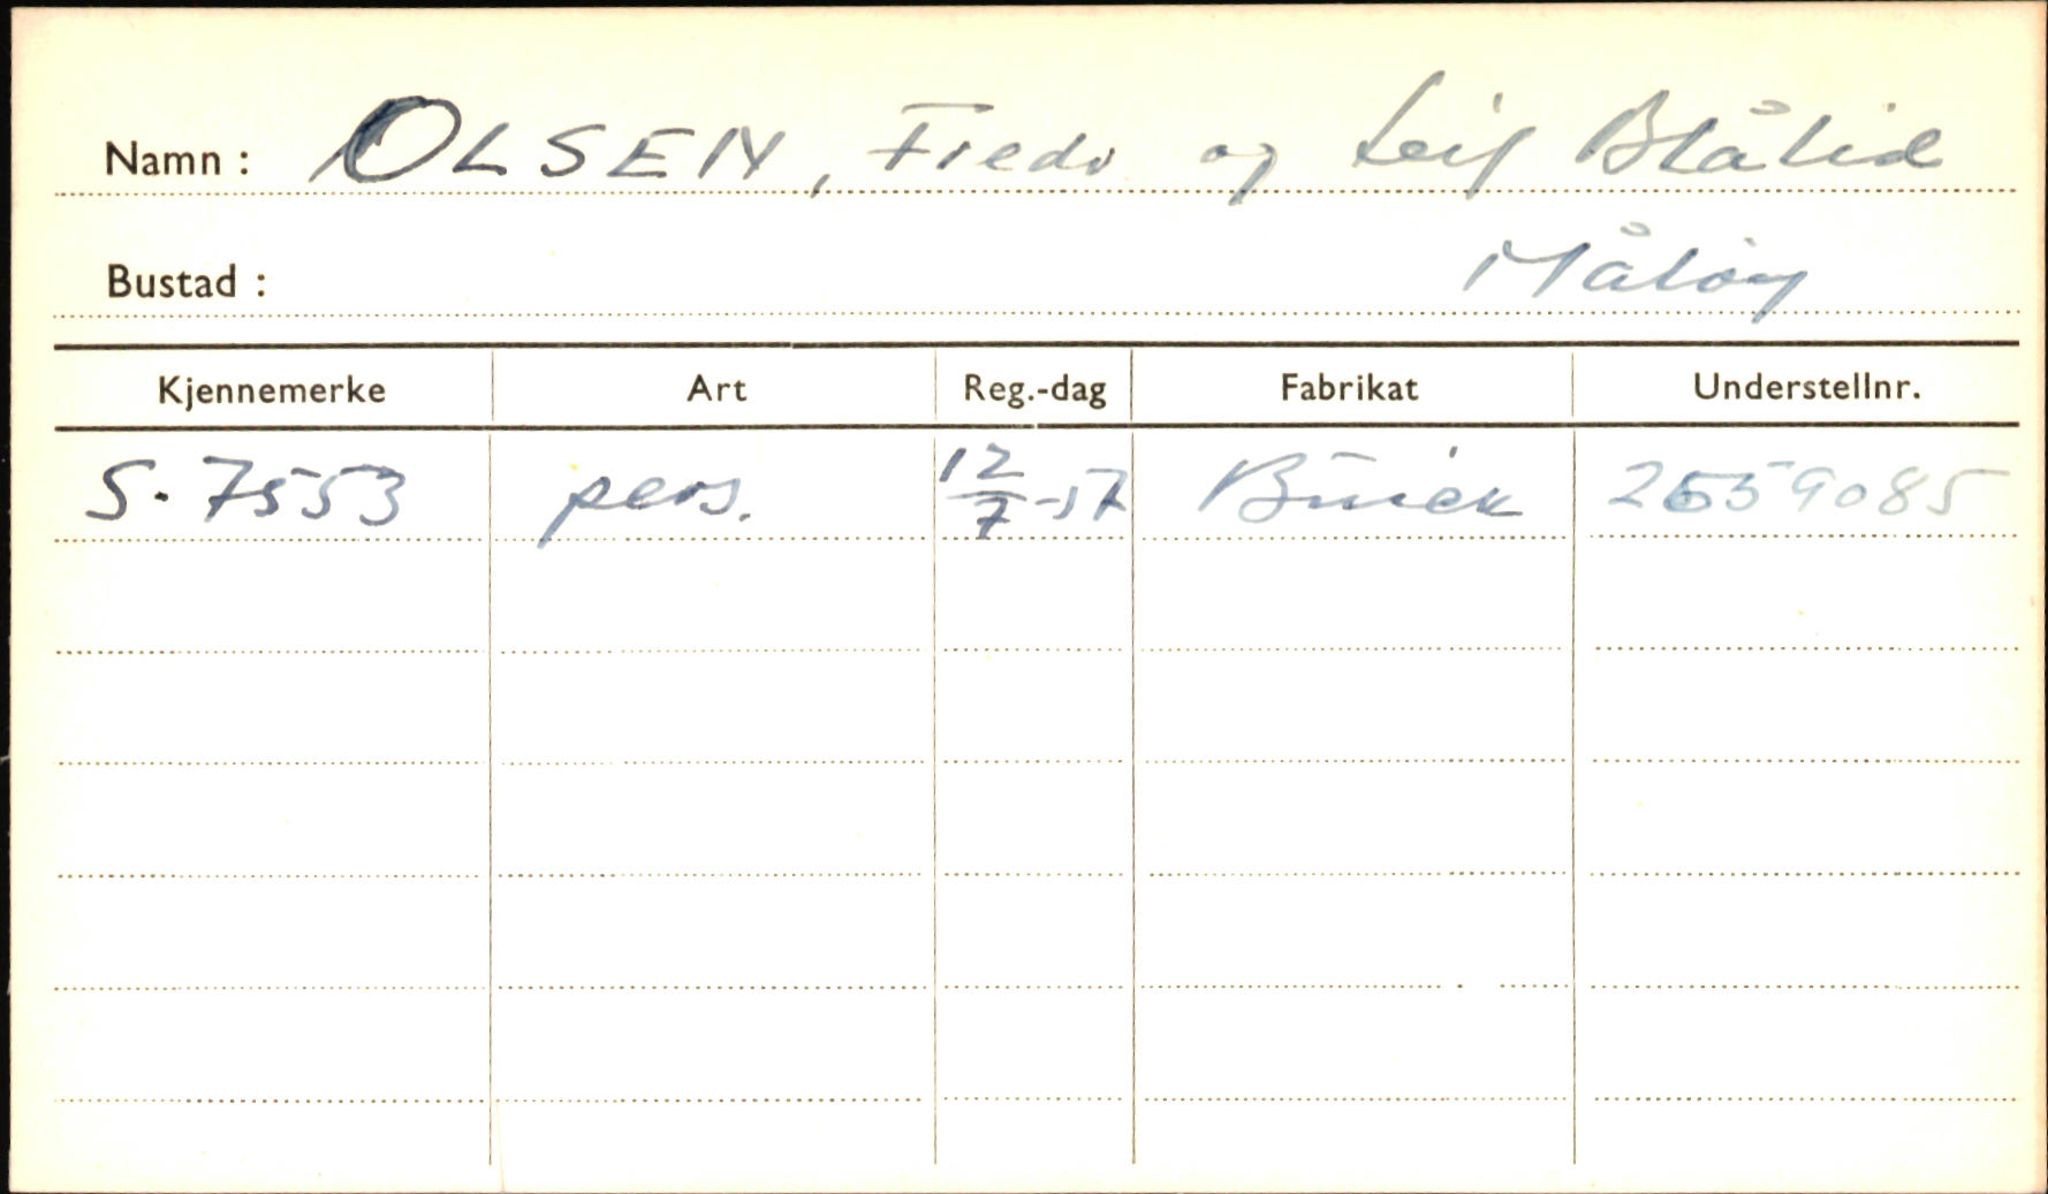 Namn : OLSEN, Fredr og Leif Blålid
Bustad : Måløy
Kjennemerke Art Reg.-dag Fabrikat Understellnr.
S-7553 pers. 12/7-57 Buick 26559085